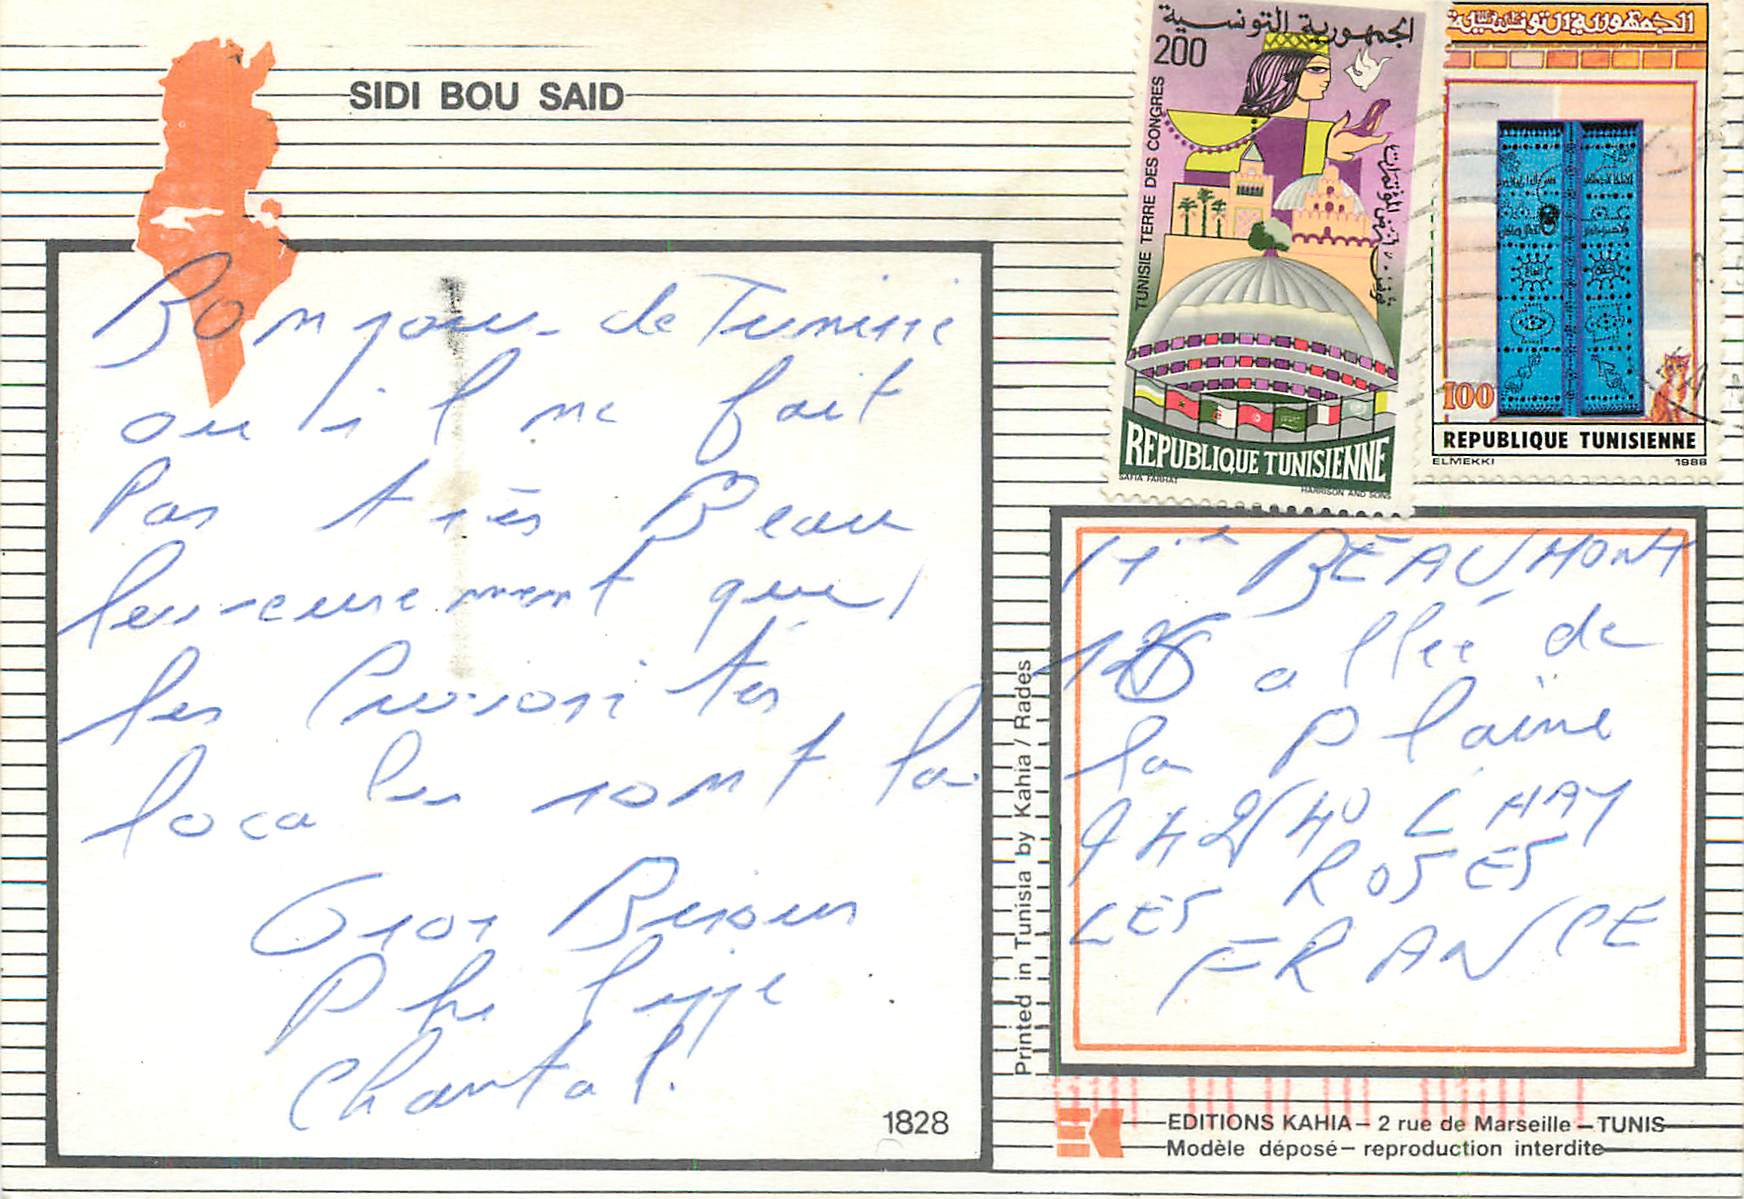 SIDI BOU SAID
الجمهورية التونسية
200
TUNISIE TERRE DES CONGRES
REPUBLIQUE TUNISIENNE
SAFIA FARHAT
HARRISON AND SONS
الجمهورية التونسية
100
REPUBLIQUE TUNISIENNE
ELMEKKI
1988
Bonjour de Tunisie
ou il ne fait
Pas très Beau
heureusement que
les Curiosités
locales sont là
Gros Bisous
Philippe
Chantal.
1828
Printed in Tunisia by Kahia / Rades
BEAUMONT
126 allée de
la Plaine
94240 L HAY
LES ROSES
FRANCE
EDITIONS KAHIA – 2 rue de Marseille – TUNIS
Modèle déposé – reproduction interdite